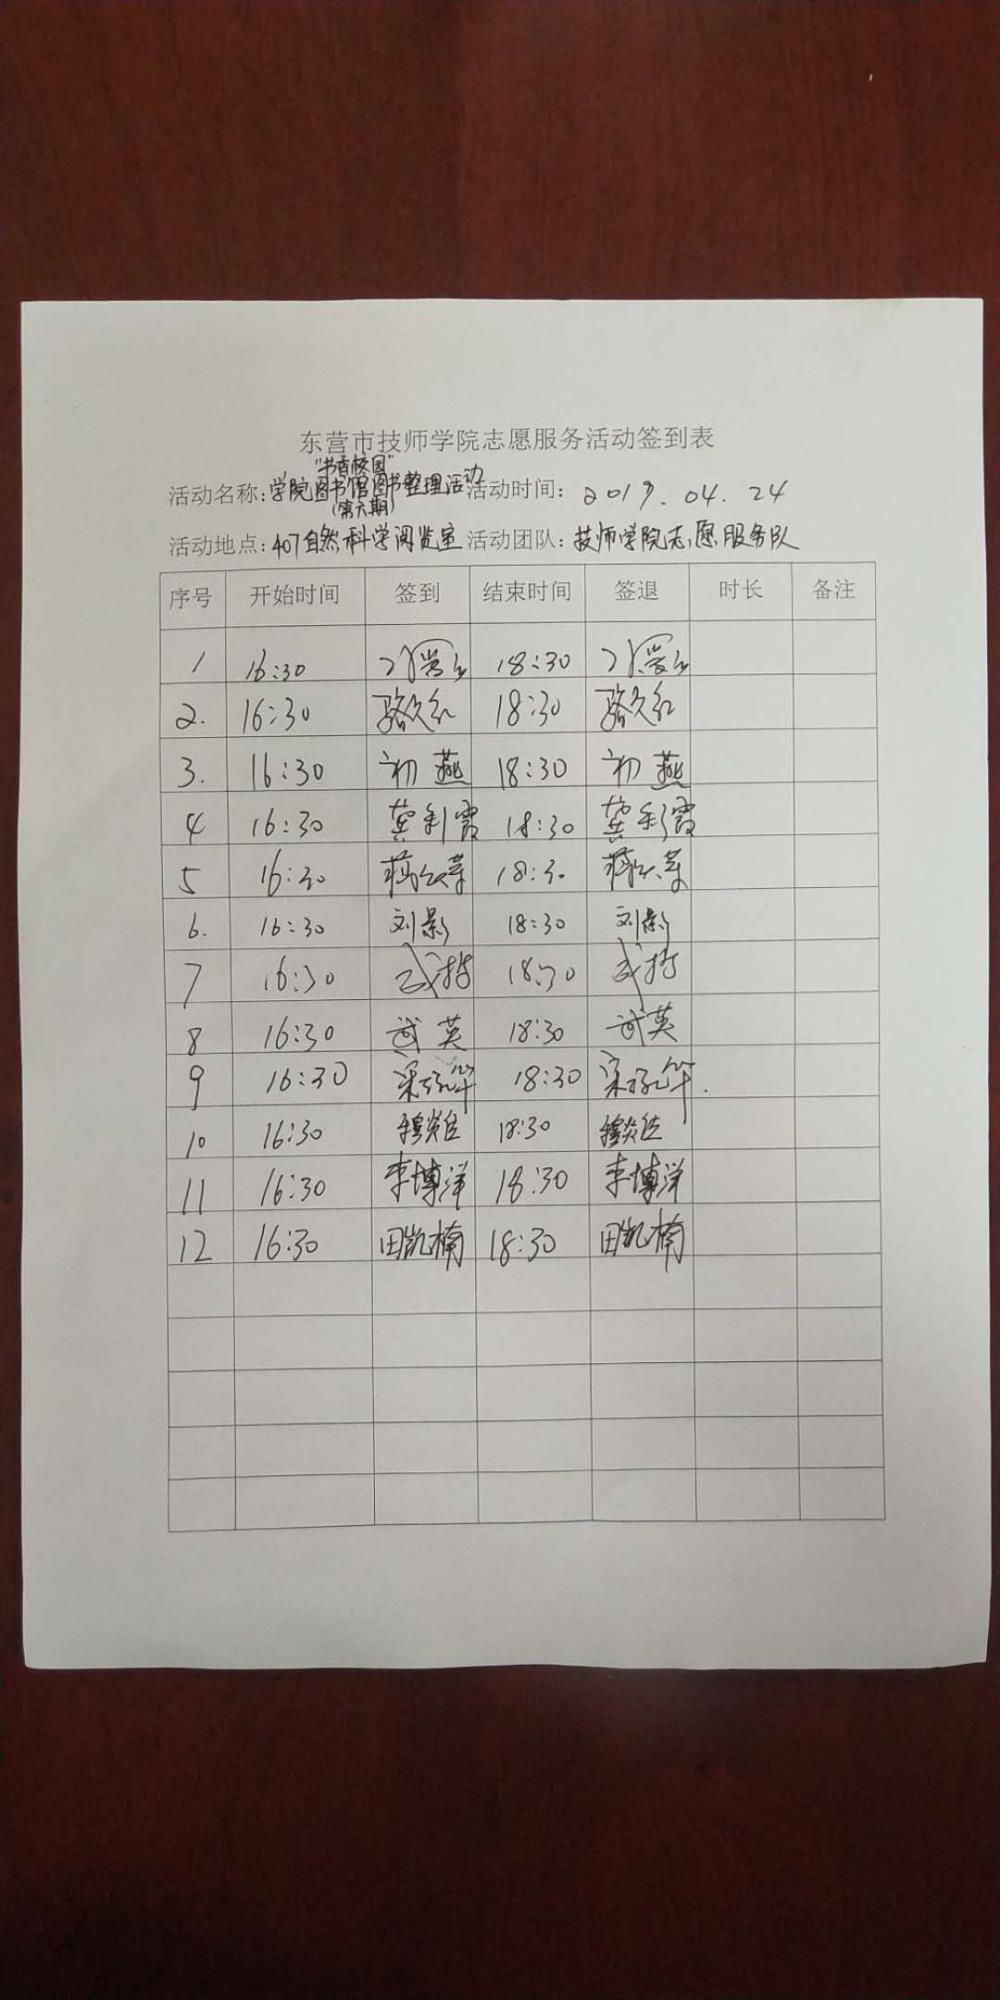 东营市技师学院志愿服务活动签到表
"书香校园"
活动名称:学院图书馆图书整理活动 活动时间: 2019.04.24
(第六期)
活动地点:407自然科学阅览室 活动团队:技师学院志愿服务队
序号 开始时间 签到 结束时间 签退 时长 备注
1 16:30 18:30
2. 16:30 骆久红 18:30 骆久红
3. 16:30 初燕 18:30 初燕
4 16:30 龚彩霞 18:30 龚彩霞
5 16:30 18:30
6. 16:30 刘影 18:30 刘影
7 16:30 18:30
8 16:30 武英 18:30 武英
9 16:30 18:30
10 16:30 18:30
11 16:30 李博洋 18:30 李博洋
12 16:30 田凯楠 18:30 田凯楠